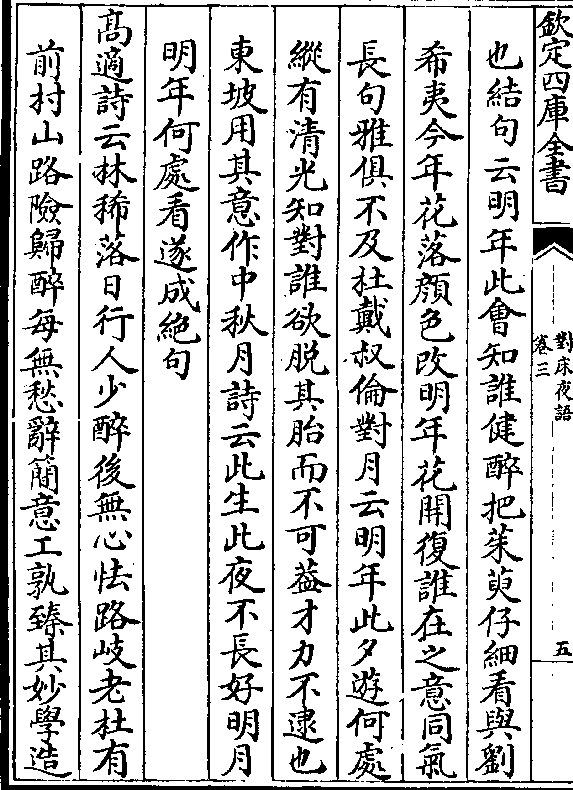 欽定四庫全書
對床夜語
卷三
五
也結句云明年此會知誰健醉把茱萸仔細看與劉
希夷今年花落顔色改明年花開復誰在之意同氣
長句雅俱不及杜戴叔倫對月云明年此夕遊何處
縱有清光知對誰欲脱其胎而不可葢才力不逮也
東坡用其意作中秋月詩云此生此夜不長好明月
明年何處看遂成絶句
髙適詩云林稀落日行人少醉後無心怯路岐老杜有
前村山路險歸醉每無愁辭簡意工孰臻其妙學造